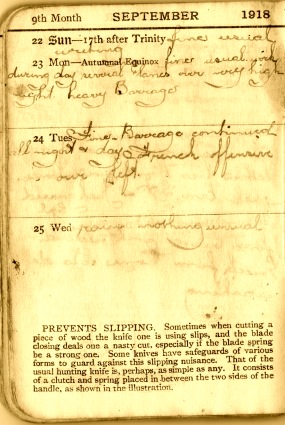 9th Month SEPTEMBER 1918
22 Sun—17th after Trinity fine usual
23 Mon—Autumnal Equinox fine usual work
during day several planes over very high
night heavy Barrage
24 Tues Fine Barrage continued
all night & day French offensive
on our left.
25 Wed raining nothing unusual
PREVENTS SLIPPING. Sometimes when cutting a
piece of wood the knife one is using slips, and the blade
closing deals one a nasty cut, especially if the blade spring
be a strong one. Some knives have safeguards of various
forms to guard against this slipping nuisance. That of the
usual hunting knife is, perhaps, as simple as any. It consists
of a clutch and spring placed in between the two sides of the
handle, as shown in the illustration.